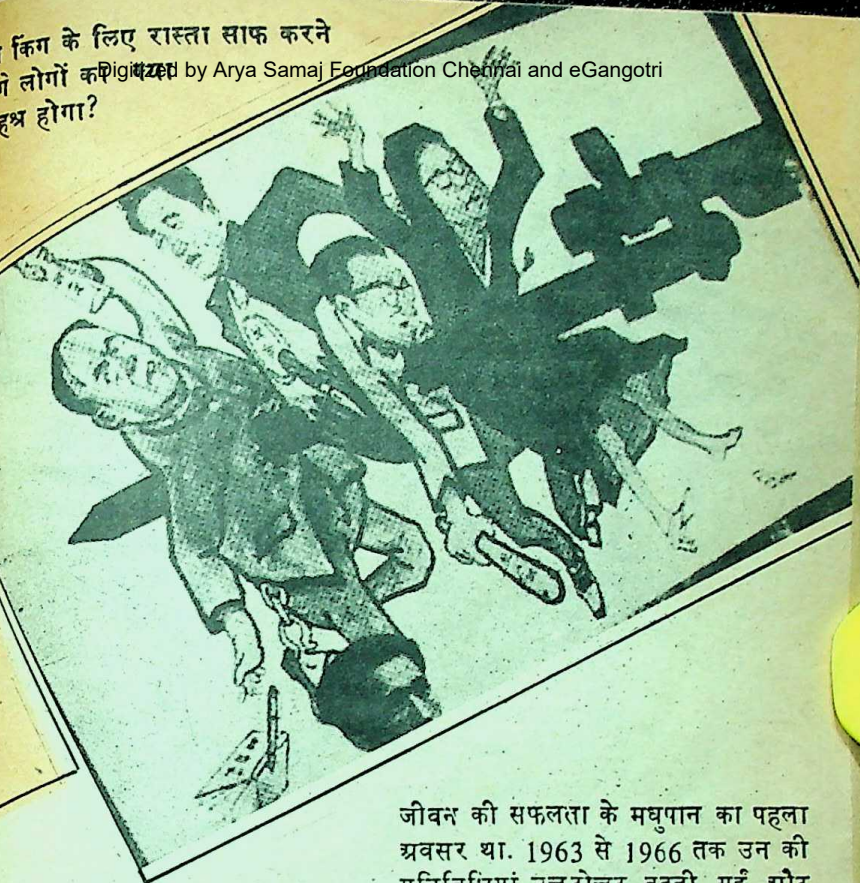 किंग के लिए रास्ता साफ करने
Digitized by Arya Samaj Foundation Chennai and eGangotri
लोगों का क्या
होगा?
जीवन की सफलता के मधुपान का पहला
अवसर था. 1963 से 1966 तक उन की